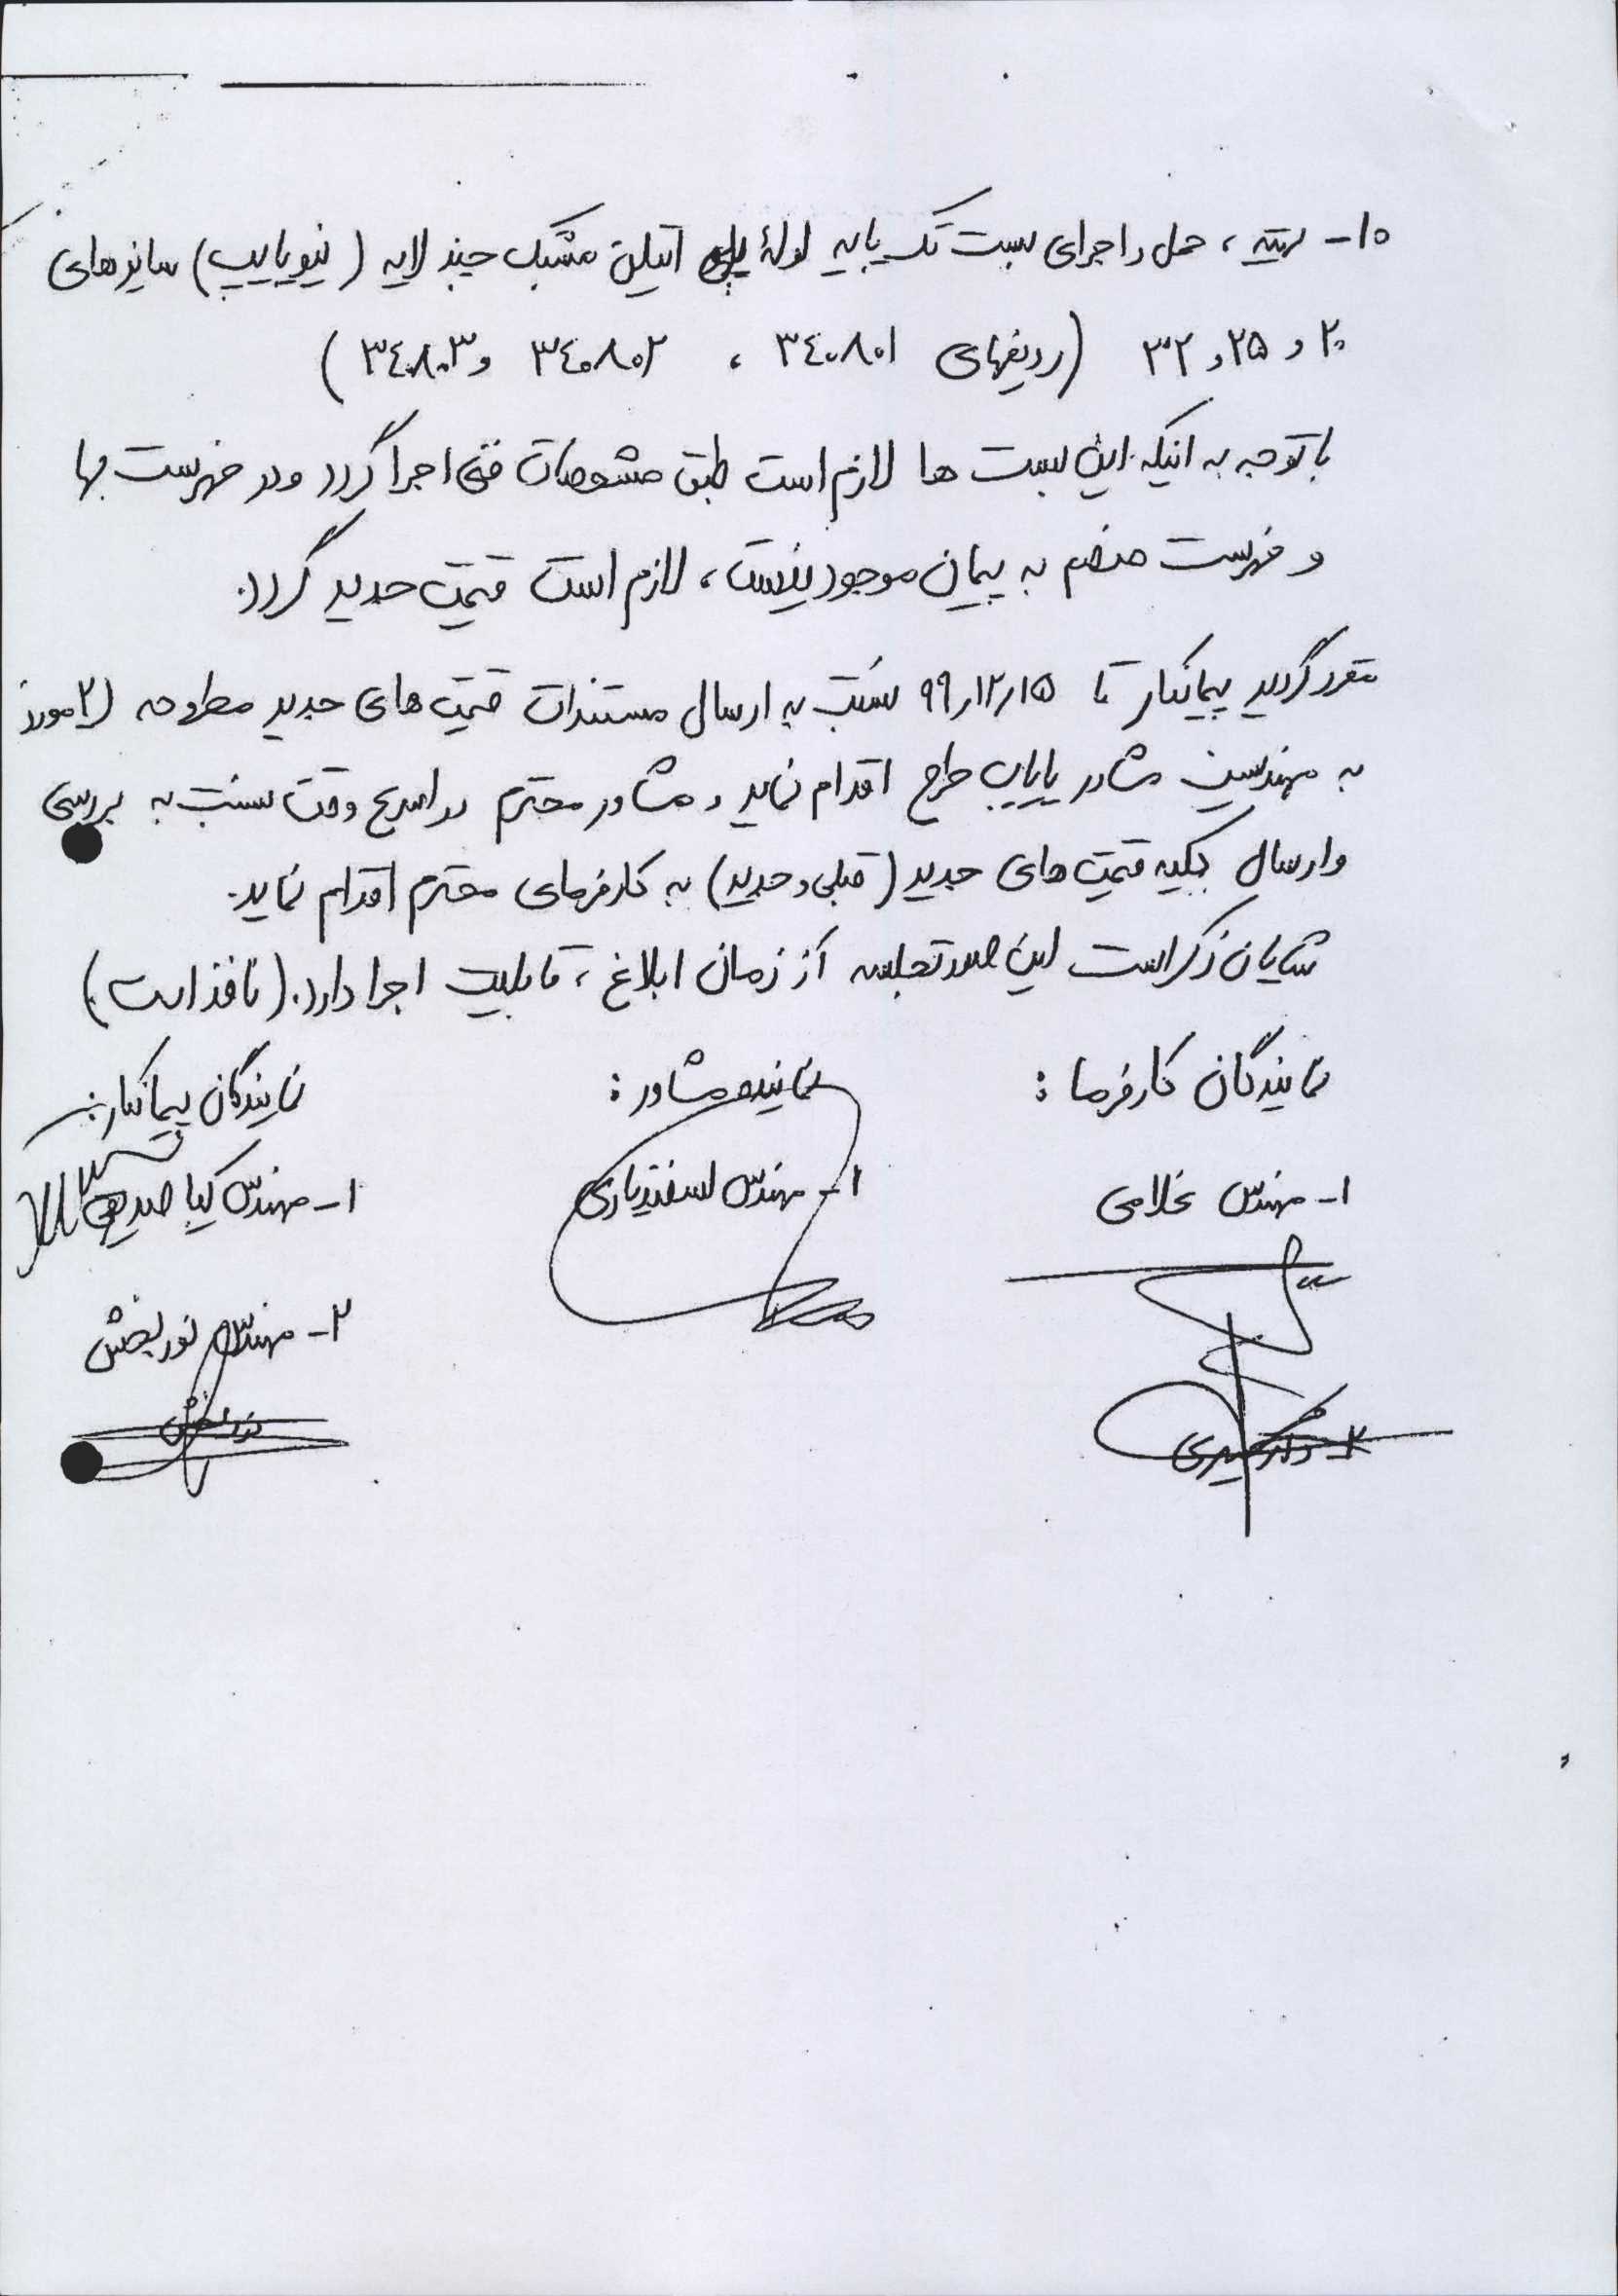 ۱۰- تهیه، حمل و اجرای بست تک پایه لولهٔ پلی اتیلن مشبک چند لایه (نیوپایپ) سایزهای
۲۰ و ۲۵ و ۳۲ (ردیفهای ۳۴۰۸۰۱ ، ۳۴۰۸۰۲ و ۳۴۰۸۰۳)
با توجه به اینکه این بست ها لازم است طبق مشخصات فنی اجرا گردد و در فهرست بها
و فهرست منضم به پیمان موجود نیست، لازم است قیمت جدید گردد.
مقرر گردید پیمانکار تا ۹۹/۱۲/۱۵ نسبت به ارسال مستندات قیمت های جدید مطروحه
به مهندسین مشاور پایاب طرح اقدام نماید و مشاور محترم در اسرع وقت نسبت به بررسی
و ارسال کلیه قیمت های جدید (قبلی و جدید) به کارفرمای محترم اقدام نماید.
شایان ذکر است این صورتجلسه از زمان ابلاغ، قابلیت اجرا دارد. (نافذ است.)
نمایندگان کارفرما :
نماینده مشاور :
نمایندگان پیمانکار :
۱- مهندس غلامی
۱- مهندس اسفندیاری
۱- مهندس کیا
۲- مهندس نوربخش
نوربخش
۲- دکتر